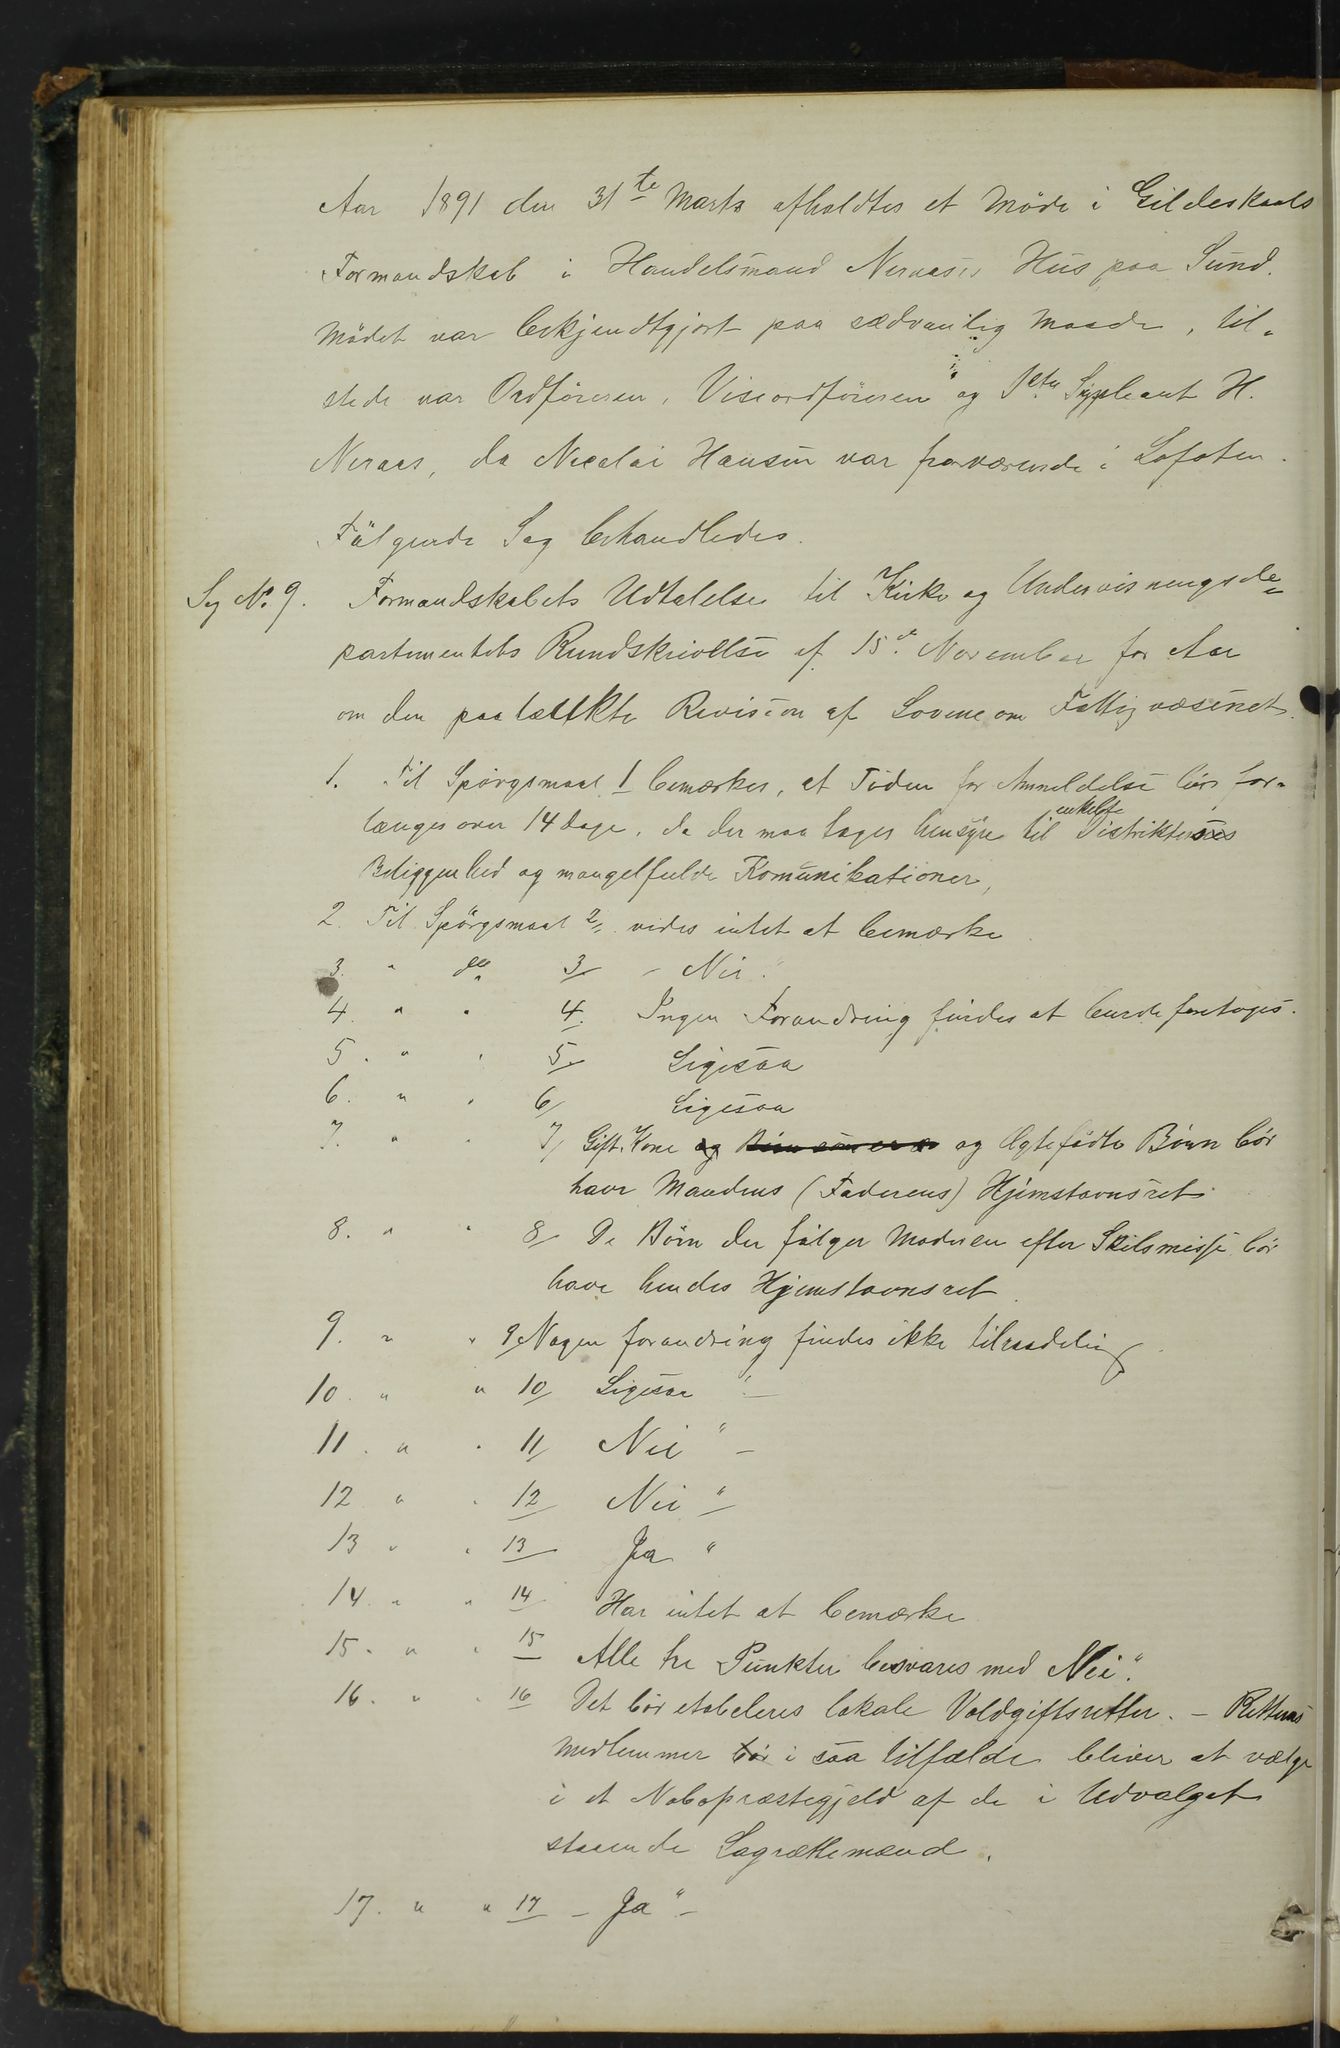 Aar 1891 den 31te Marts afholdtes et Möde i Gildeskaals
Formandskab i Handelsmand Neraases Hus paa Sund.
Mödet var bekjendtgjort paa sædvanlig Maade, til-
stede var Ordföreren, Viseordföreren og 1ste Supleant H.
Neraas, da Nicolai Hansen var fraværende i Lofoten.
Fölgende Sag behandledes.
Sag No. 9. Formandskabets Udtalelse til Kirke og Undervisningsde-
partementets Rundskrivelse af 15de November for Aar
om den paatænkte Revision af Lovene om Fattigvæsenet.
1. Til Spörgsmaal 1 bemærkes, at Tiden for Anmeldelse bör for-
længes over 14 Dage, da der maa tages hensyn til enkelte Distrikters
Beliggenhed og mangelfulde Komunikationer,
2. Til Spörgsmaal 2, vides intet at bemærke
3. " do 3 - Nei."
4. " " 4. Ingen Forandring findes at burde foretages.
5. " " 5. Ligesaa
6. " " 6 Ligesaa
7. " " 7 Gift Kone og og Ægtefödte Börn bör
have Mandens (Faderens) Hjemstavnsret.
8. " " 8 De Börn der fölger Moderen efter Skilsmisse bör
have hendes Hjemstavnsret
9. " " 9 Nogen forandring findes ikke tilraadelig.
10. " " 10 Ligesaa " -
11. " " 11 Nei " -
12 " " 12 Nei "
13 " " 13 Ja "
14. " " 14 Har intet at bemærke
15. " " 15 Alle tre Punkter besvares med Nei".
16. " " 16 Det bör etableres lokale Voldgiftsretter. - Rettens
Medlemmer bör i saa tilfælde bliver at vælge
i et Nabopræstegjeld af de i Udvalget
staaende Lagrættemænd.
17. " " 17 - Ja " -